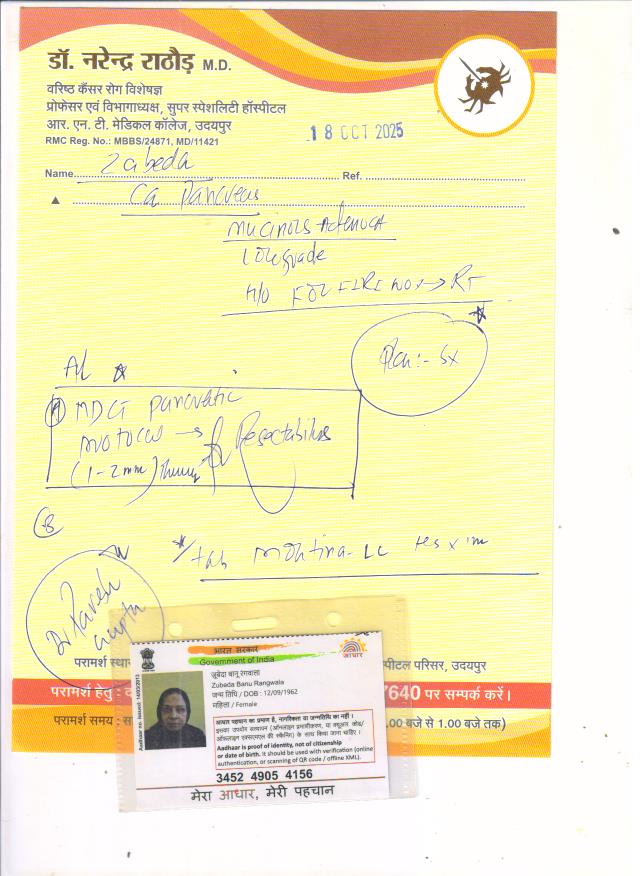 डॉ. नरेन्द्र राठौड़ M.D.
वरिष्ठ कैंसर रोग विशेषज्ञ
प्रोफेसर एवं विभागाध्यक्ष, सुपर स्पेशलिटी हॉस्पीटल
आर. एन. टी. मेडिकल कॉलेज, उदयपुर
RMC Reg. No.: MBBS/24871, MD/11421
18 OCT 2025
Name Zabeda Ref.
Ca Pancreas
Mucinous Adenoca
Low grade
H/O FOLFIRINOX → RT
Plan :- Sx
Ad
MDCT Pancreatic
Protocol → Resectability
(1-2mm)
B
tab Montina-LC
Dr Paresh
Gupta
परामर्श स्थान
हॉस्पीटल परिसर, उदयपुर
परामर्श हेतु :
7640 पर सम्पर्क करें।
परामर्श समय :
.00 बजे से 1.00 बजे तक)
भारत सरकार
Government of India
आधार
Aadhaar no. issued: 14/03/2013
जुबेदा बानू रंगवाला
Zubeda Banu Rangwala
जन्म तिथि / DOB : 12/09/1962
महिला / Female
आधार पहचान का प्रमाण है, नागरिकता या जन्मतिथि का नहीं।
इसका उपयोग सत्यापन (ऑनलाइन प्रमाणीकरण, या क्यूआर कोड/
ऑफलाइन एक्सएमएल की स्कैनिंग) के साथ किया जाना चाहिए।
Aadhaar is proof of identity, not of citizenship
or date of birth. It should be used with verification (online
authentication, or scanning of QR code / offline XML).
3452 4905 4156
मेरा आधार, मेरी पहचान